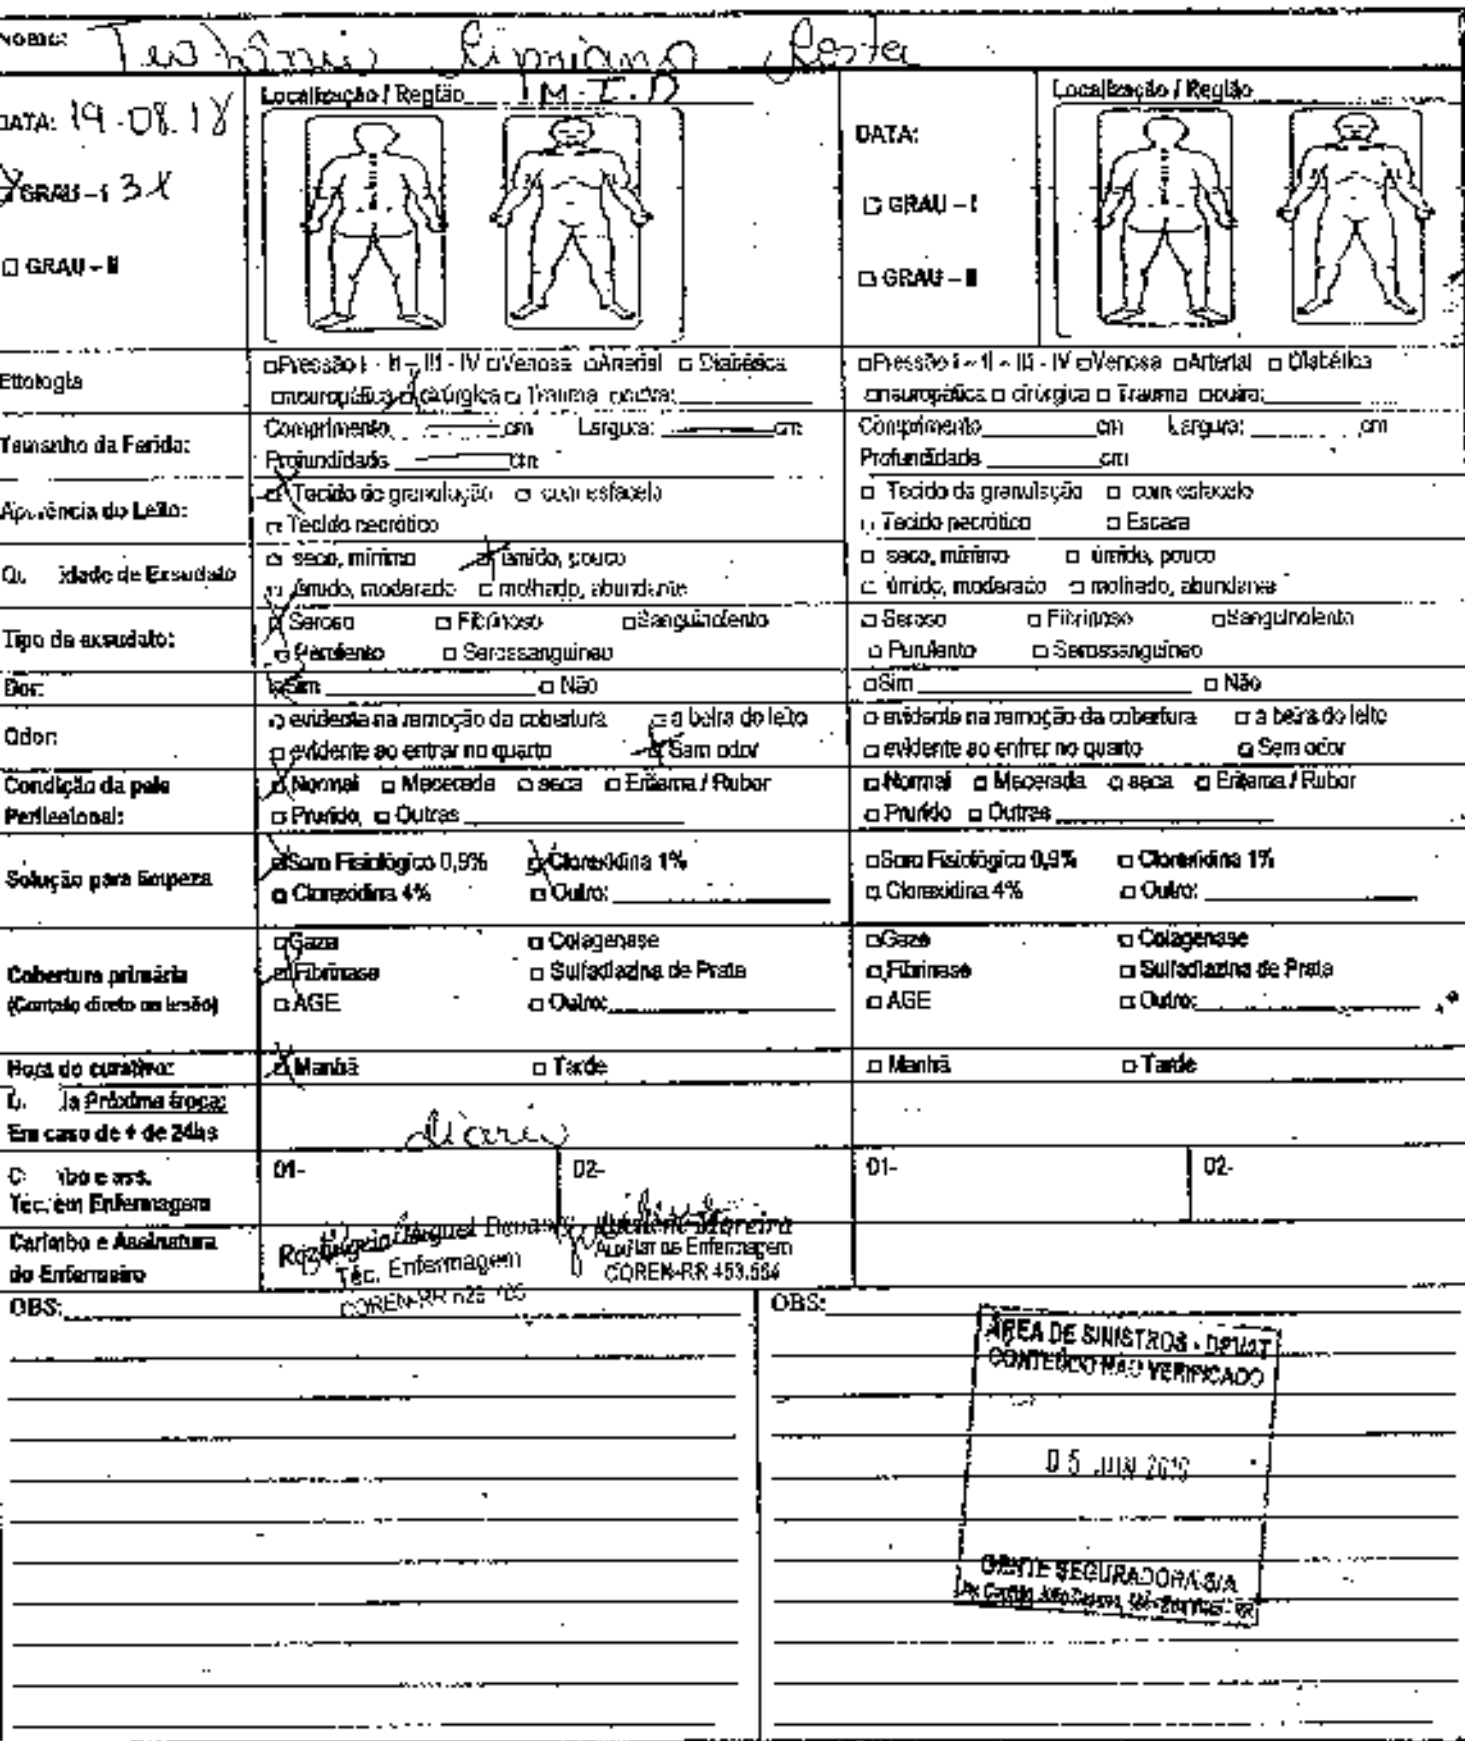 NOME: Cipriano Costa
DATA: 19.08.18
GRAU - I 3X
GRAU - II
Localização / Região M.I.D
DATA:
GRAU - I
GRAU - II
Localização / Região
Etiologia
Pressão I - II - III - IV Venosa Arterial Diabética
neuropática cirúrgica Trauma outra:
Pressão I - II - III - IV Venosa Arterial Diabética
neuropática cirúrgica Trauma outra:
Tamanho da Ferida:
Comprimento cm Largura: cm
Profundidade cm
Comprimento cm Largura: cm
Profundidade cm
Aparência do Leito:
Tecido de granulação com esfacelo
Tecido necrótico
Tecido de granulação com esfacelo
Tecido necrótico Escara
Qu idade de Exsudato
seco, mínimo úmido, pouco
úmido, moderado molhado, abundante
seco, mínimo úmido, pouco
úmido, moderado molhado, abundante
Tipo de exsudato:
Seroso Fibrinoso Sanguinolento
Purulento Serossanguineo
Seroso Fibrinoso Sanguinolento
Purulento Serossanguineo
Dor:
Sim Não
Sim Não
Odor:
evidente na remoção da cobertura a beira do leito
evidente ao entrar no quarto Sem odor
evidente na remoção da cobertura a beira do leito
evidente ao entrar no quarto Sem odor
Condição da pele
Perilesional:
Normal Macerada seca Eritema / Rubor
Prurido, Outras
Normal Macerada seca Eritema / Rubor
Prurido Outros
Solução para limpeza
Soro Fisiológico 0,9% Clorexidina 1%
Clorexidina 4% Outro:
Soro Fisiológico 0,9% Clorexidina 1%
Clorexidina 4% Outro:
Cobertura primária
(Contato direto na lesão)
Gaze Colagenase
Fibrinase Sulfadiazina de Prata
AGE Outro:
Gaze Colagenase
Fibrinase Sulfadiazina de Prata
AGE Outro:
Hora do curativo:
Manhã Tarde
Manhã Tarde
D la Próxima troca:
Em caso de + de 24hs
diario
C ibo e ass.
Téc. em Enfermagem
01- 02-
01- 02-
Carimbo e Assinatura
do Enfermeiro
Téc. Enfermagem
COREN-RR
Moreira
Auxiliar de Enfermagem
COREN-RR 453.554
OBS:
OBS:
ÁREA DE SINISTROS - DPVAT
CONTEÚDO NÃO VERIFICADO
05 JUN
GENTE SEGURADORA S/A